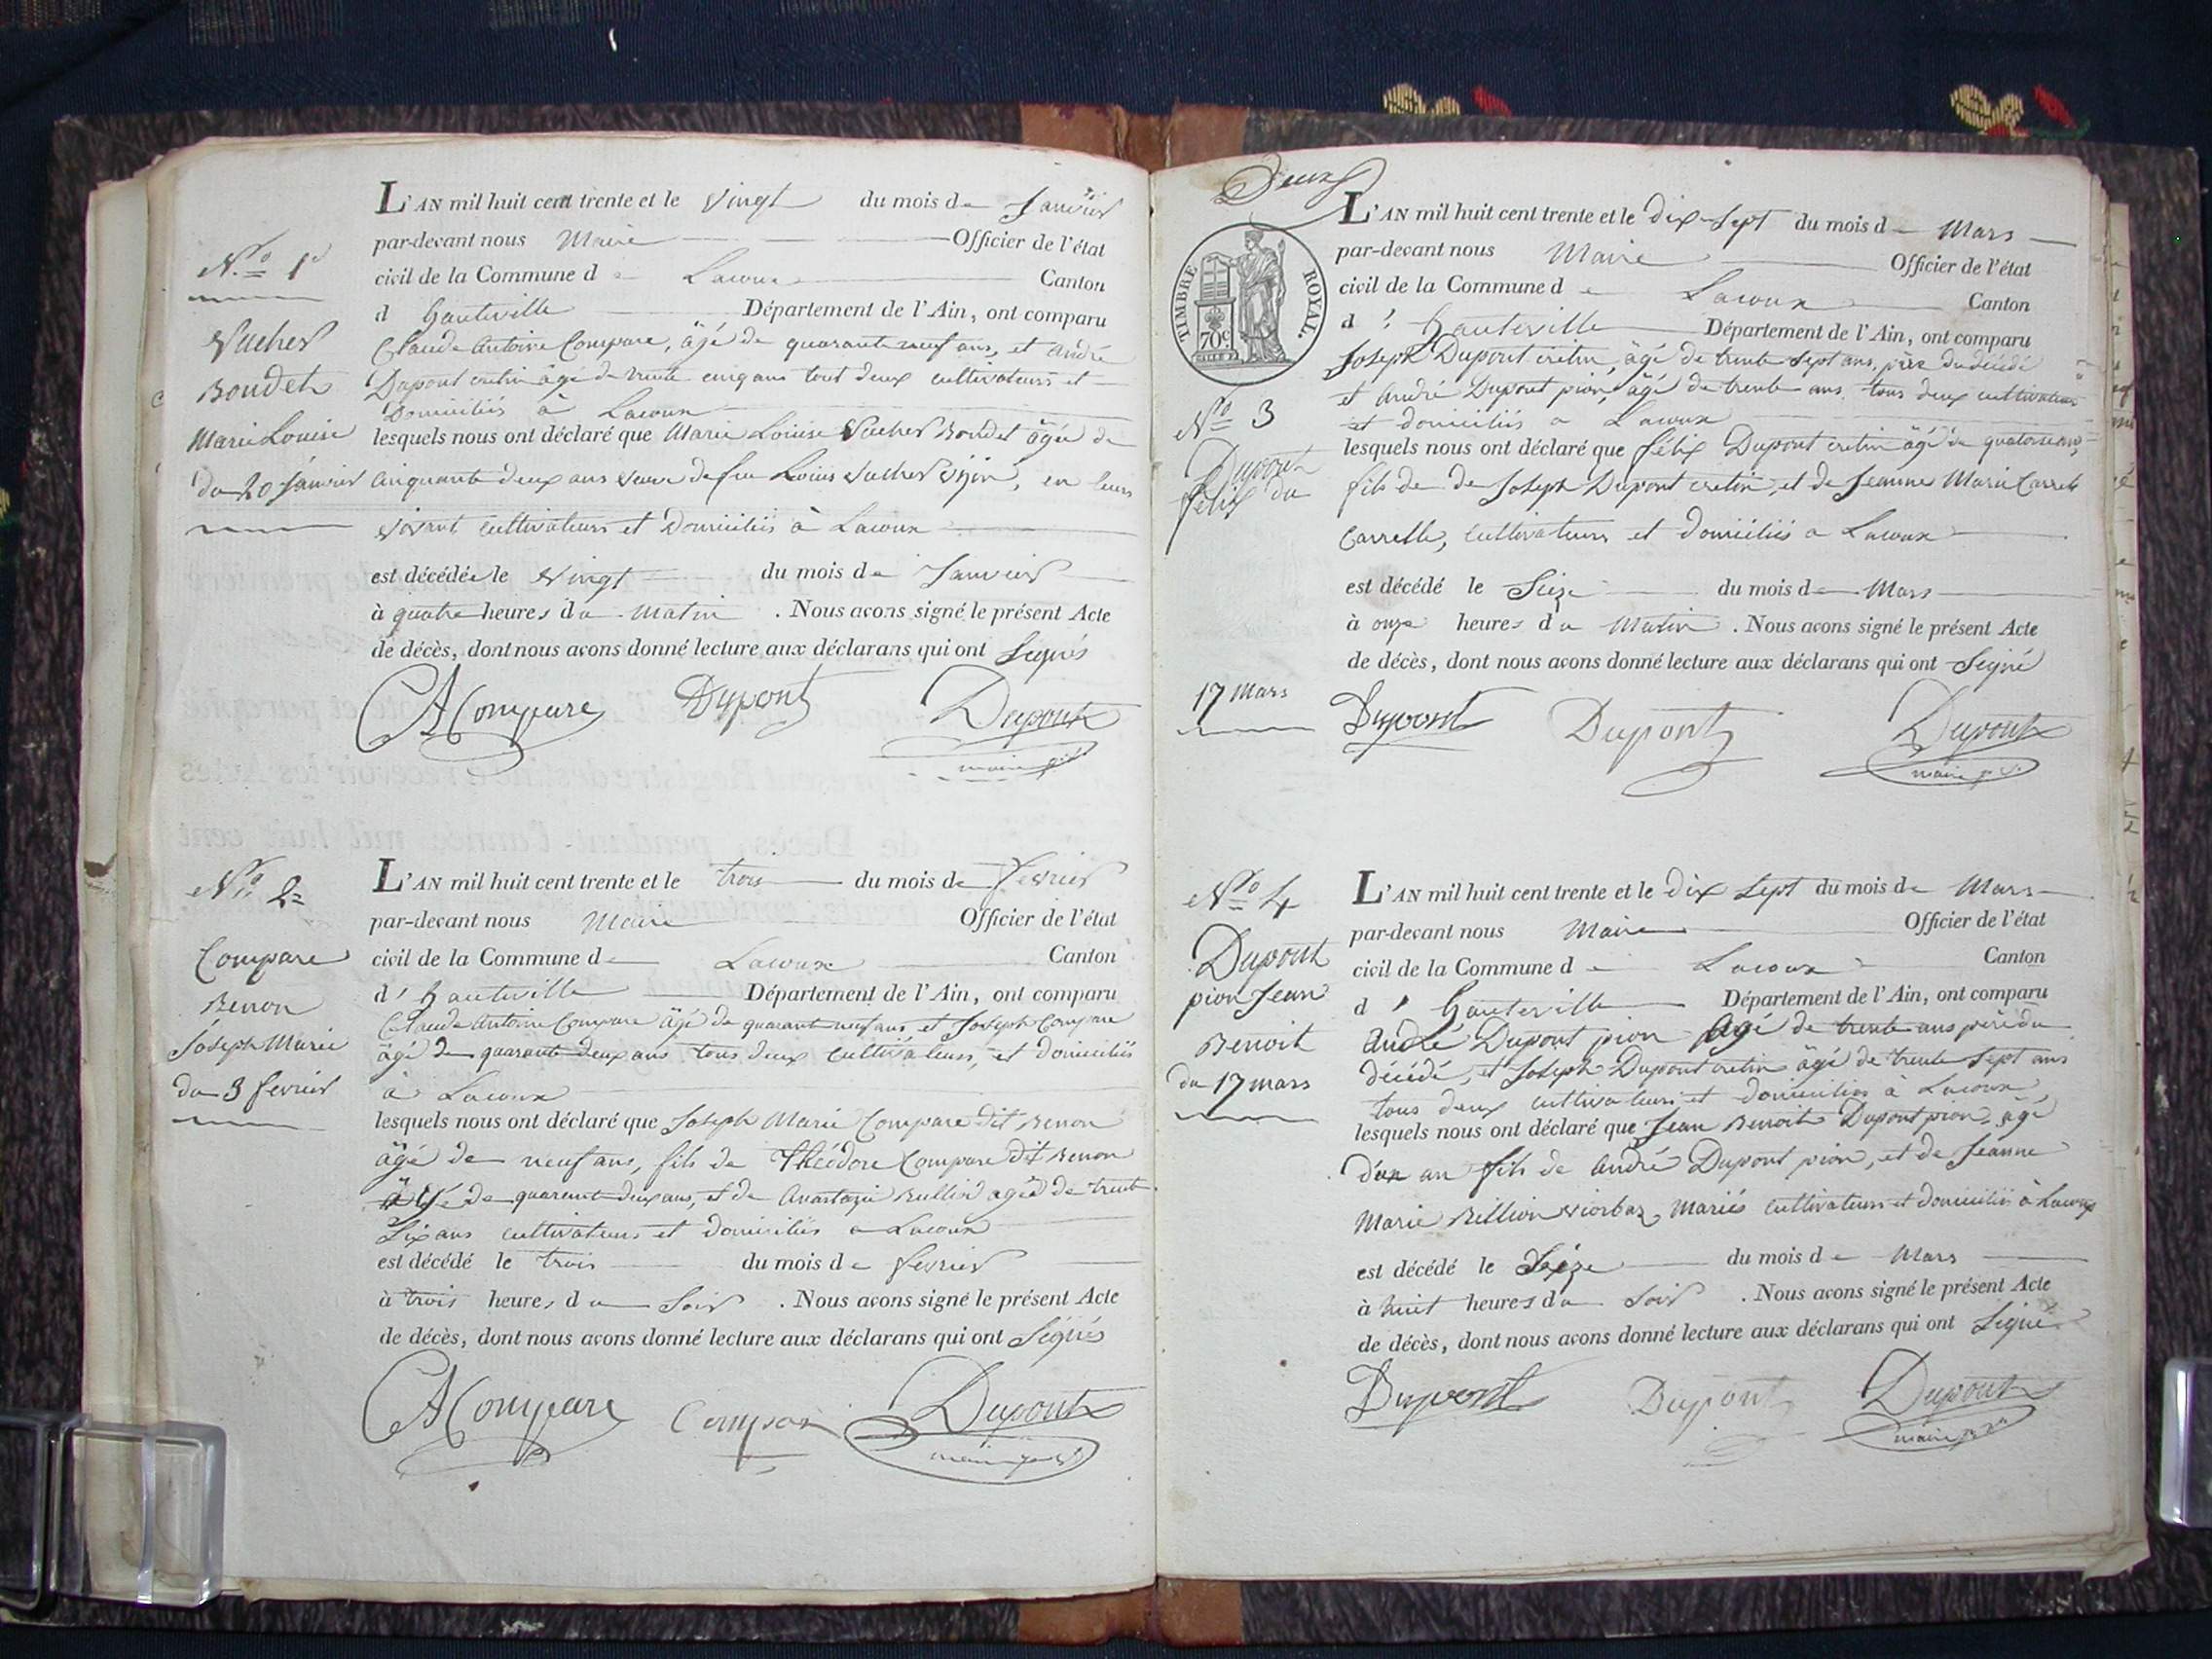 L'AN mil huit cent trente et le Vingt du mois de Janvier
par-devant nous Maire Officier de l'état
N.ro 1er
civil de la Commune de Lacoux Canton
d hauteville Département de l'Ain, ont comparu
Vucher
Claude Antoine Compare, âgé de quarante neuf ans, et André
Boudet
Dupont cretin âgé de trente cinq ans tout deux cultivateurs et
Domiciliés à Lacoux
Marie Louise
lesquels nous ont déclaré que Marie Louise Vucher Boudet âgée de
du 20 Janvier
cinquante deux ans veuve de feu Louis Vucher, en leurs
vivant cultivateurs et Domiciliés à Lacoux
est décédée le vingt du mois de Janvier
à quatre heures du Matin . Nous avons signé le présent Acte
de décès, dont nous avons donné lecture aux déclarans qui ont Signés
CACompare Dupont Dupont
maire
N.ro 2
L'AN mil huit cent trente et le trois du mois de fevrier
par-devant nous Maire Officier de l'état
Compare
civil de la Commune de Lacoux Canton
Benon
d' hauteville Département de l'Ain, ont comparu
Claude Antoine Compare âgé de quarante neuf ans et Joseph Compare
Joseph Marie
âgé de quarante deux ans tous deux cultivateurs, et domiciliés
du 3 fevrier
à Lacoux
lesquels nous ont déclaré que Joseph Marie Compare dit Benon
âgé de neuf ans, fils de Théodore Compare dit Benon
âgé de quarente deux ans, et de Anastazie Bullid agéd de trente
Six ans cultivateurs et domiciliés a Lacoux
est décédé le trois du mois de fevrier
à trois heures du Soir . Nous avons signé le présent Acte
de décès, dont nous avons donné lecture aux déclarans qui ont Signés
CACompare Compare Dupont
maire
Deux
TIMBRE ROYAL.
70c
L'AN mil huit cent trente et le dix-Sept du mois de Mars
par-devant nous Maire Officier de l'état
civil de la Commune de Lacoux Canton
d' hauteville Département de l'Ain, ont comparu
Joseph Dupont cretin, âgé de trente Sept ans, père du décédé
et André Dupont pion, âgé de trente ans tous deux cultivateurs
N.ro 3
et domiciliés a Lacoux
Dupont
lesquels nous ont déclaré que félix Dupont cretin âgé de quatorze ans,
félix du
fils de de Joseph Dupont cretin, et de Jeanne Marie Carrel
Carrelle, cultivateurs et domiciliés a Lacoux
est décédé le Seize du mois de Mars
à onze heures du Matin . Nous avons signé le présent Acte
de décès, dont nous avons donné lecture aux déclarans qui ont Signé
17 mars
Dupont Dupont Dupont
maire
N.ro 4
L'AN mil huit cent trente et le dix Sept du mois de Mars
par-devant nous Maire Officier de l'état
Dupont
civil de la Commune de Lacoux Canton
pion Jean
d' hauteville Département de l'Ain, ont comparu
Benoit
André Dupont pion Agé de trente ans père du
du 17 mars
décédé, et Joseph Dupont cretin âgé de trente Sept ans
tous deux cultivateurs et domiciliés à Lacoux
lesquels nous ont déclaré que Jean Benoit Dupont pion, agé
d'un an fils de André Dupont pion, et de Jeanne
Marie Billion Mariés cultivateurs et domiciliés à Lacoux
est décédé le Seize du mois de Mars
à huit heures du Soir . Nous avons signé le présent Acte
de décès, dont nous avons donné lecture aux déclarans qui ont Signé
Dupont Dupont Dupont
maire